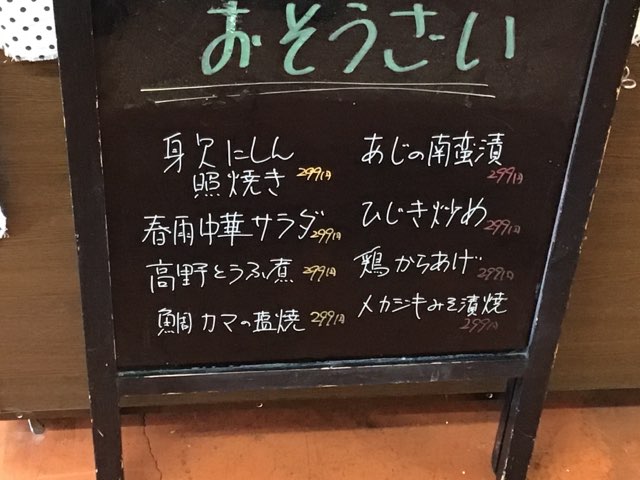 おそうざい
身欠にしん
照焼き 299円
春雨中華サラダ 299円
高野とうふ煮 299円
鯛カマの塩焼 299円
あじの南蛮漬
299円
ひじき炒め 299円
鶏からあげ 299円
メカジキみそ漬焼
299円